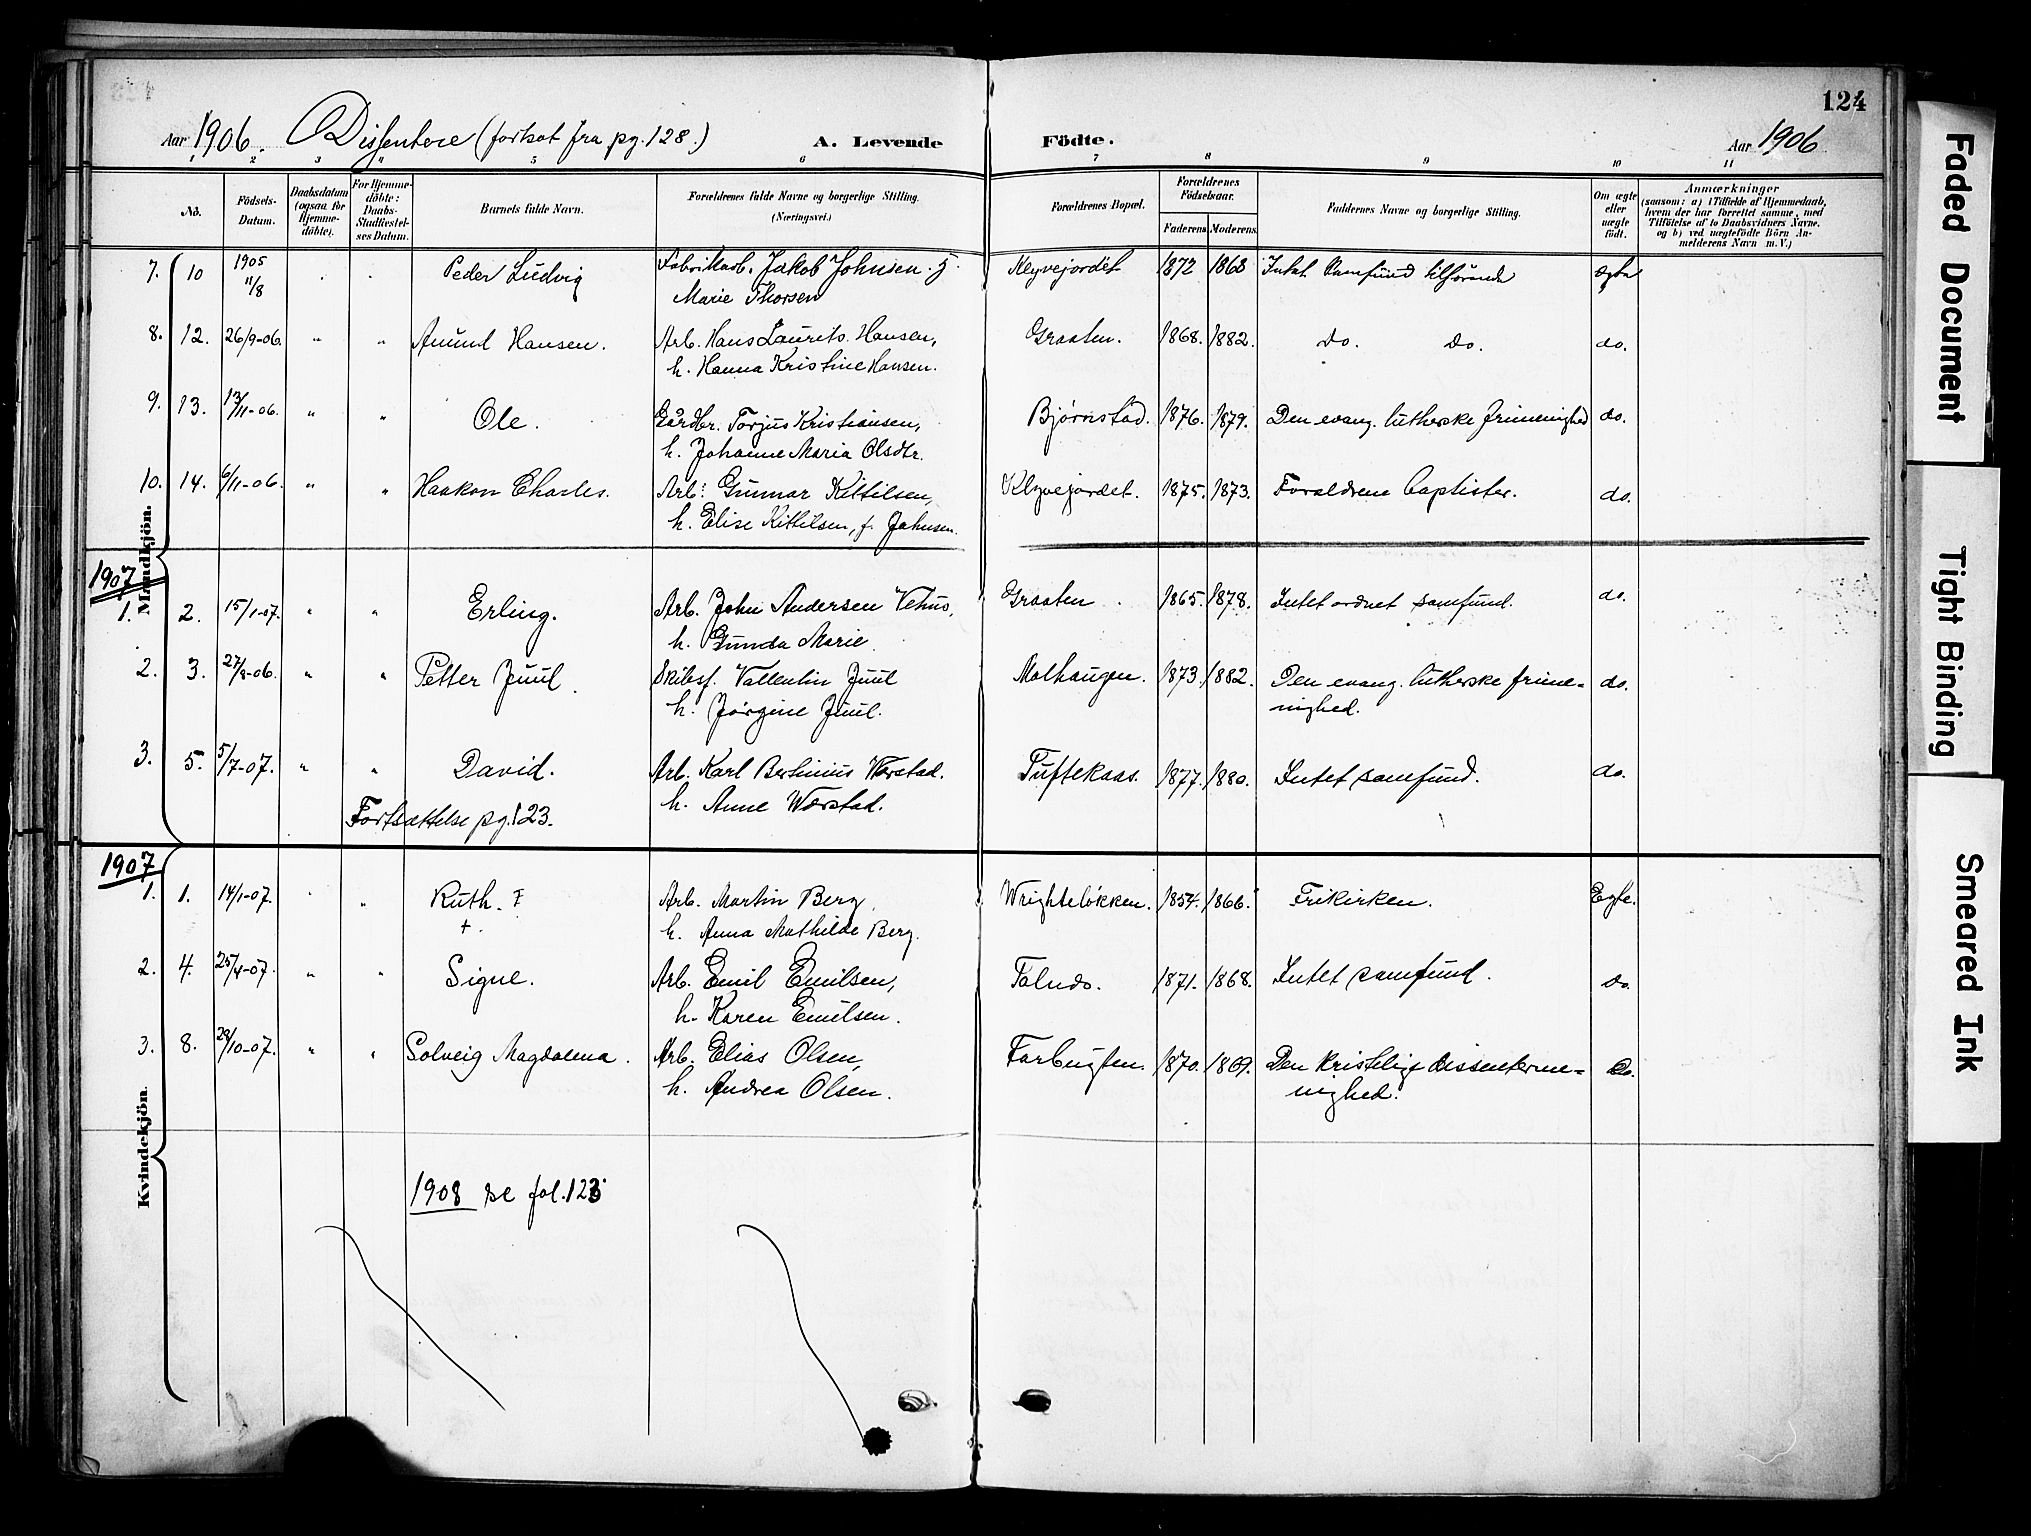 124
Aar 1906. Dissentere (fortsat fra pg. 128.) A. Levende Födte. Aar 1906
2 3 4 5 6 7 8 9 10 11
No. Födsels-Datum. Daabsdatum (ogsaa for Hjemme-döbte). For Hjemme-döbte: Daabs-Stadfæstel-ses Datum. Barnets fulde Navn. Forældrenes fulde Navne og borgerlige Stilling. (Næringsvei.) Forældrenes Bopæl. Forældrenes Födselsaar. Faderens Moderens Faddernes Navne og borgerlige Stilling. Om ægte eller uægte födt. Anmærkninger (saasom: a) i Tilfælde af Hjemmedaab, hvem der har forrettet samme, med Tilföielse af to Daabsvidners Navne, og b) ved uægtefödte Börn An-melderens Navn m. V.)
7. 10 1905 11/8 Peder Ludvig Fabrikarb. Jakob Johnsen Klyvejordet 1872 1868 Intet Samfund tilhörende ægte
Marie Thorsen
8. 12. 26/9-06. " " Amund Hansen. Arb. Hans Laurits Hansen, Graaten. 1868. 1882. do. do. do.
h. Hanna Kristine Hansen.
9. 13. 13/11-06. " " Ole. Gårdbr. Torjus Kristiansen, Bjørnstad. 1876. 1879. Den evang. lutherske frimenighed do.
h. Johanne Maria Olsdtr.
10. 14. 6/11-06. " " Haakon Charles. Arb. Gunnar Kittilsen, Klyvejordet. 1875. 1873. Forældrene baptister. do.
h. Elise Kittilsen, f. Johnsen.
Mandkjön.
1907
1. 2. 15/1-07. " " Erling. Arb. John Andersen Vehus, Graaten. 1865. 1878. Intet ordnet samfund. do.
h. Gunda Marie
2. 3. 27/8-06. " " Petter Juul. Skibsf. Vallentin Juul Molhaugen. 1873. 1882. Den evang. lutherske frime=
h. Jørgine Juul. nighed. do.
3. 5. 5/7-07. " " David. Arb. Karl Bertinius Wærstad. Tuftekaas. 1877. 1880. Intet samfund. do.
h. Anne Wærstad.
Fortsættelse pg. 123.
1907
1. 1. 14/1-07. " " Ruth. Arb. Martin Berg. Wrighteløkken. 1854. 1866. Frikirken. Egte.
+. h. Anna Mathilde Berg.
2. 4. 25/4-07. " " Signe. Arb. Emil Emilsen, Falnds. 1871. 1868. Intet samfund. do.
h. Karen Emilsen.
3. 8. 29/10-07. " " Solveig Magdalena. Arb. Elias Olsen, Farbugten. 1870. 1869. Den kristelige dissenterme= do.
h. Andrea Olsen. nighed.
Kvindekjön.
1908 se fol. 123
Faded Document
Tight Binding
Smeared Ink